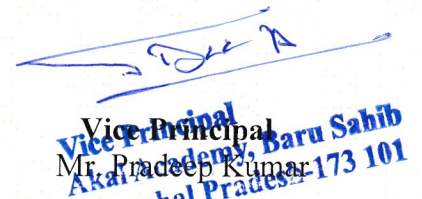 Vice Principal
Mr. Pradeep Kumar
Vice Principal
Akal Academy, Baru Sahib
Pradesh-173 101